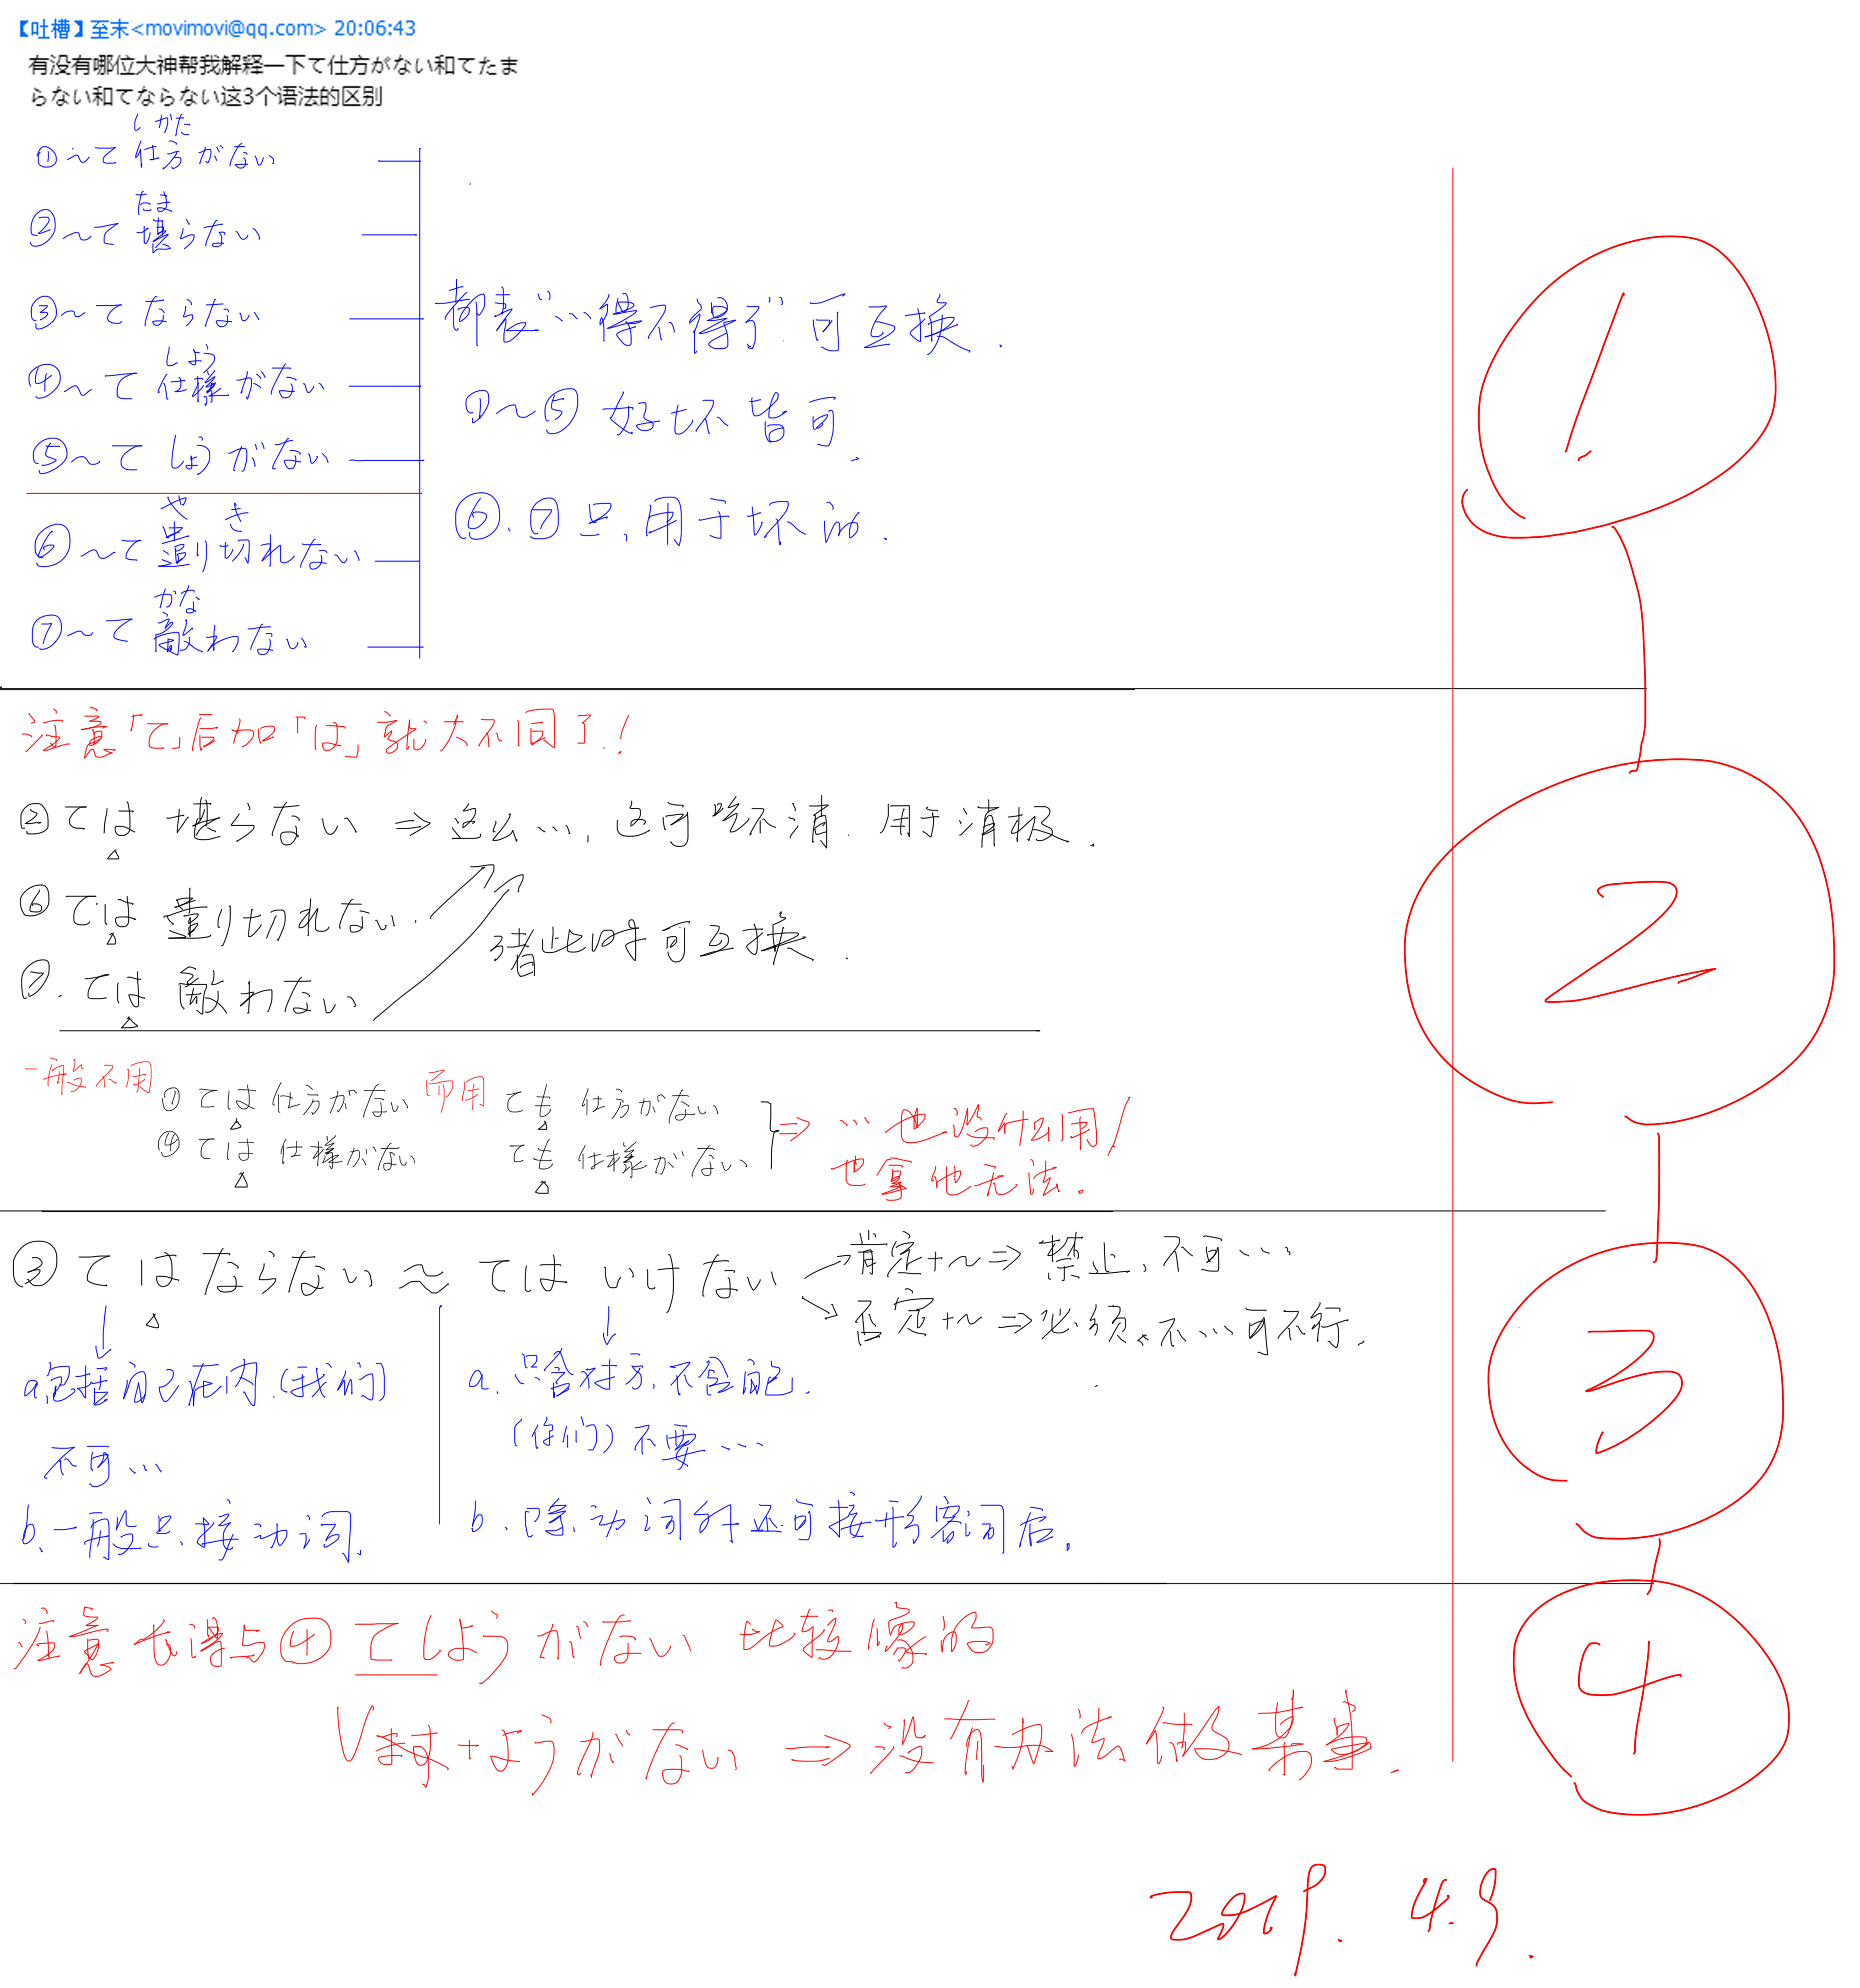 【吐槽】至末<movimovi@qq.com> 20:06:43
有没有哪位大神帮我解释一下て仕方がない和てたま
らない和てならない这3个语法的区别
しかた
①～て仕方がない
たま
②～て堪らない
③～てならない
しよう
④～て仕様がない
⑤～てしょうがない
や き
⑥～て遣り切れない
かな
⑦～て敵わない
都表“…得不得了”可互换.
①～⑤好坏皆可.
⑥.⑦只用于坏的.
1
注意「て」后加「は」就大不同了!
②ては堪らない⇒这么…,这可吃不消.用于消极.
⑥ては遣り切れない.
⑦.ては敵わない
3者此时可互换.
2
一般不用①ては仕方がない而用ても仕方がない
④ては仕様がない ても仕様がない
⇒…也没什么用/
也拿他无法。
③てはならない～てはいけない
肯定+～⇒禁止、不可…
否定+～⇒必须、不…可不行.
a.包括自己在内.(我们)
不可…
b.一般只接动词.
a.只含对方,不含自己.
(你们)不要…
b.除动词外还可接形容词后。
3
注意长得与④てしようがない比较像的
Vます+ようがない⇒没有办法做某事.
4
2019.4.9.